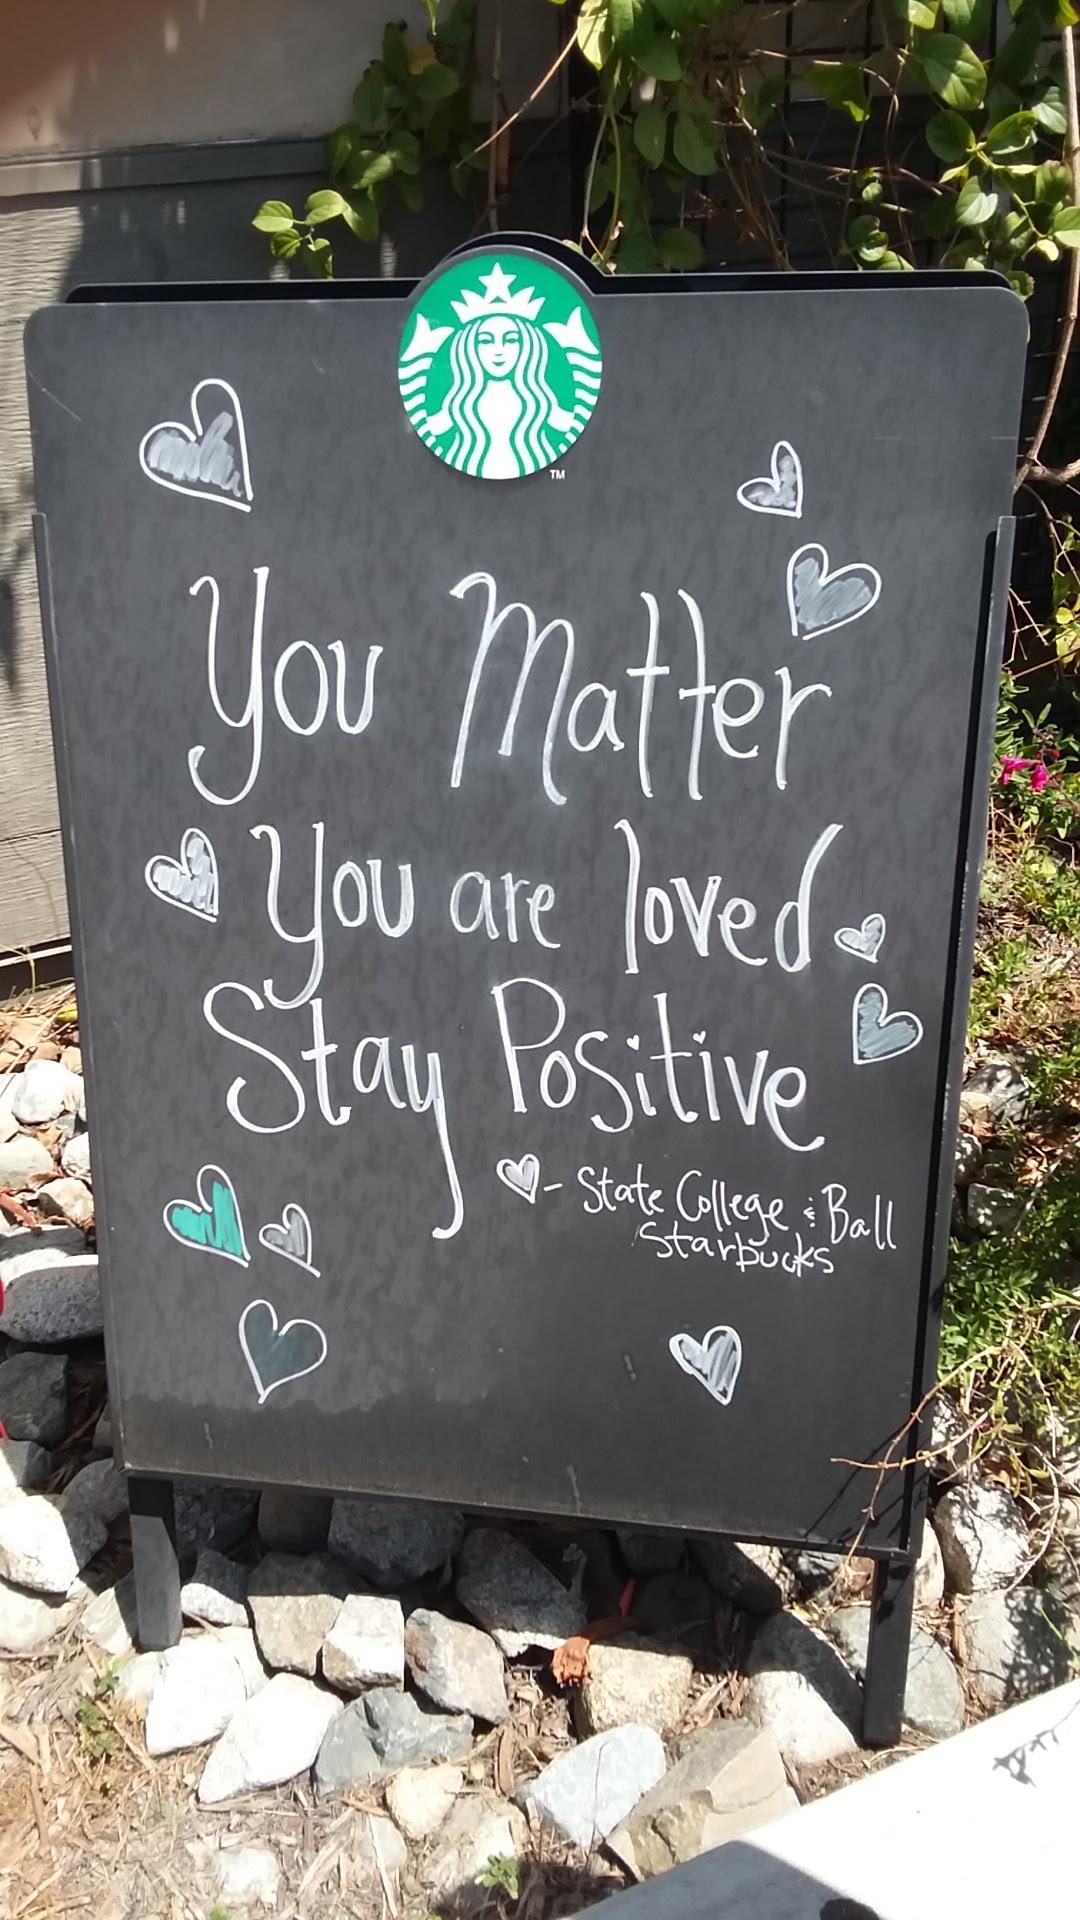 TM
You Matter
You are loved
Stay Positive
- State College & Ball
Starbucks